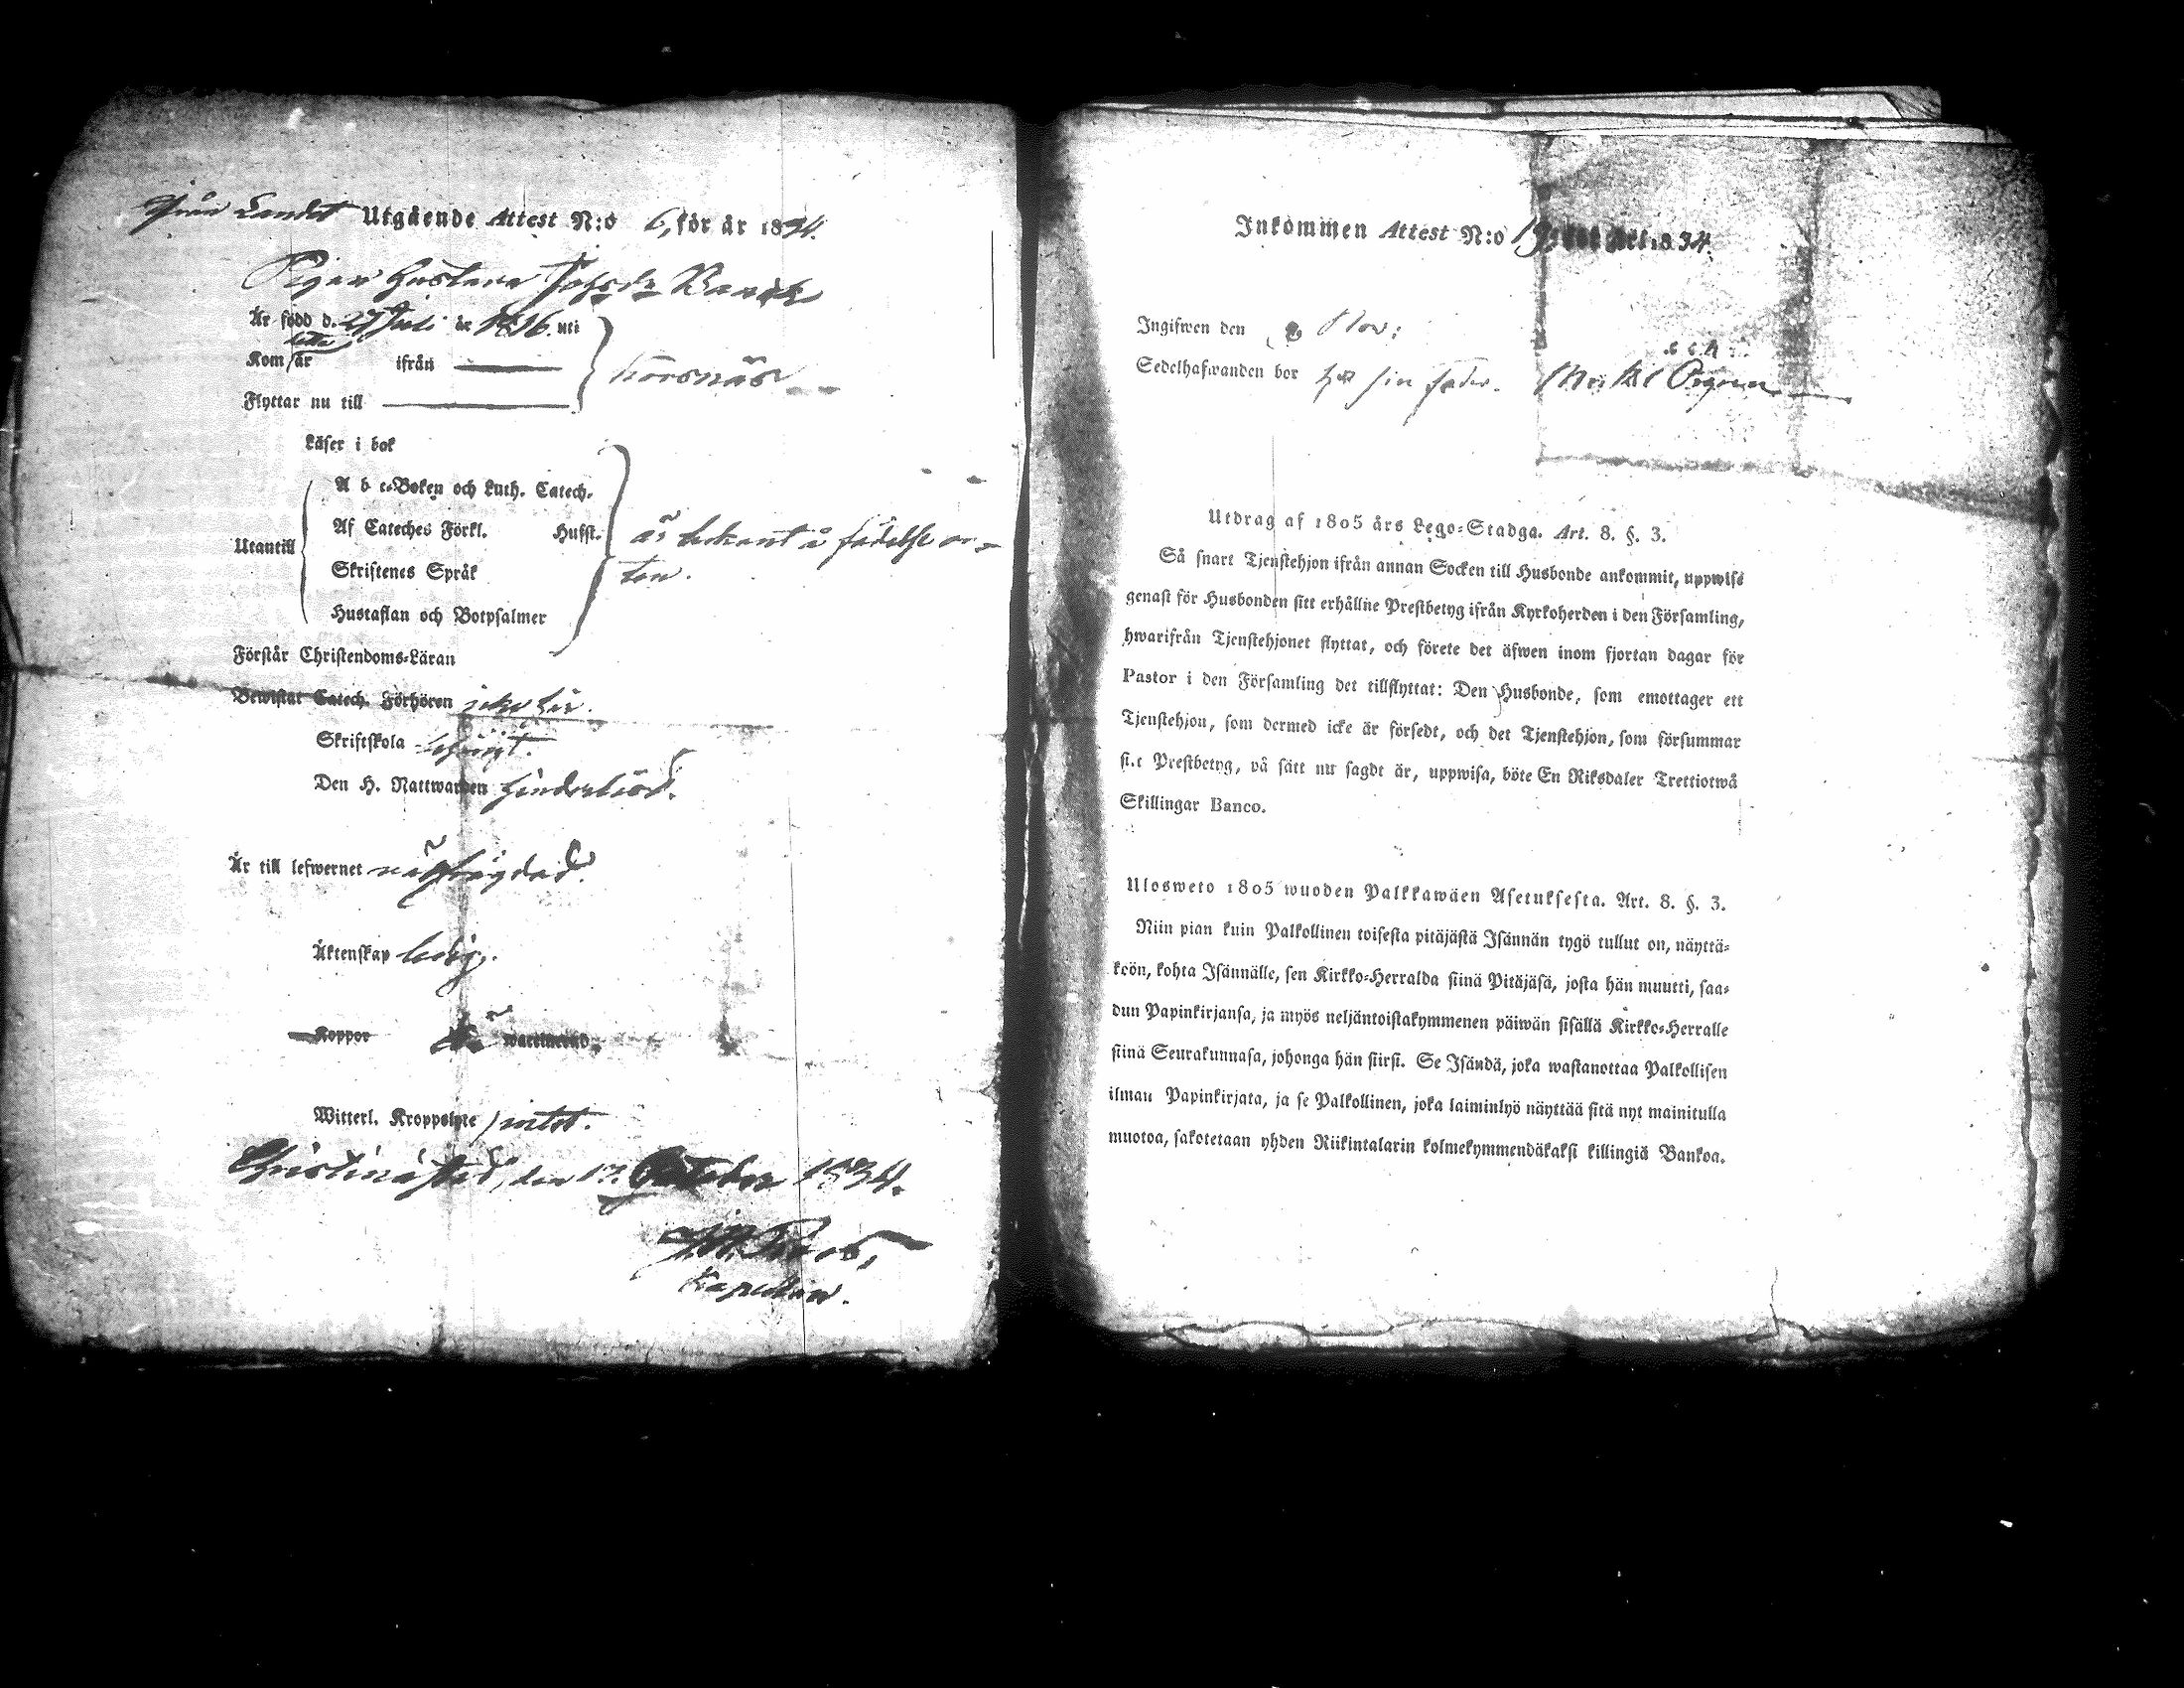 från Landet Utgående Attest N:o 6, för år 1834.
Pigan Gustava
Är född d. 27 Juli år 1816. uti
detta
Kom år ifrån Korsnäs
Flyttar nu till
Läser i bok
A b c-Boken och Luth. Catech.
Af Cateches Förkl. Husst.
Utantill är bekant å födelse or-
Skriftenes Språk ten.
Hustaflan och Botpsalmer
Förstår Christendoms-Läran
Bewistat Catech. Förhören icke här.
Skriftskola begått.
Den H. Nattwarden
Är till lefwernet
Äktenskap ledig.
Koppor
Witterl. Kroppslyte intet.
Christinæstad, den 17. October 1834.
Kapellan.
Inkommen Attest N:o 1834.
Ingifwen den Nov:
Sedelhafwanden bor hos sin fader.
Utdrag af 1805 års Lego-Stadga. Art. 8. §. 3.
Så snart Tjenstehjon ifrån annan Socken till Husbonde ankommit, uppwise
genast för Husbonden sitt erhållne Prestbetyg ifrån Kyrkoherden i den Församling,
hwarifrån Tjenstehjonet flyttat, och förete det äfwen inom fjortan dagar för
Pastor i den Församling det tillflyttat: Den Husbonde, som emottager ett
Tjenstehjon, som dermed icke är försedt, och det Tjenstehjon, som försummar
sitt Prestbetyg, på sätt nu sagdt är, uppwisa, böte En Riksdaler Trettiotwå
Skillingar Banco.
Ulosweto 1805 wuoden Palkkawäen Asetuksesta. Art. 8. §. 3.
Niin pian kuin Palkollinen toisesta pitäjästä Isännän tygö tullut on, näyttä-
köön, kohta Isännälle, sen Kirkko-Herralda siinä Pitäjäsä, josta hän muutti, saa-
dun Papinkirjansa, ja myös neljäntoistakymmenen päiwän sisällä Kirkko-Herralle
siinä Seurakunnasa, johonga hän siirsi. Se Isändä, joka wastanottaa Palkollisen
ilman Papinkirjata, ja se Palkollinen, joka laiminlyö näyttää sitä nyt mainitulla
muotoa, sakotetaan yhden Riikintalarin kolmekymmendäkaksi killingiä Bankoa.